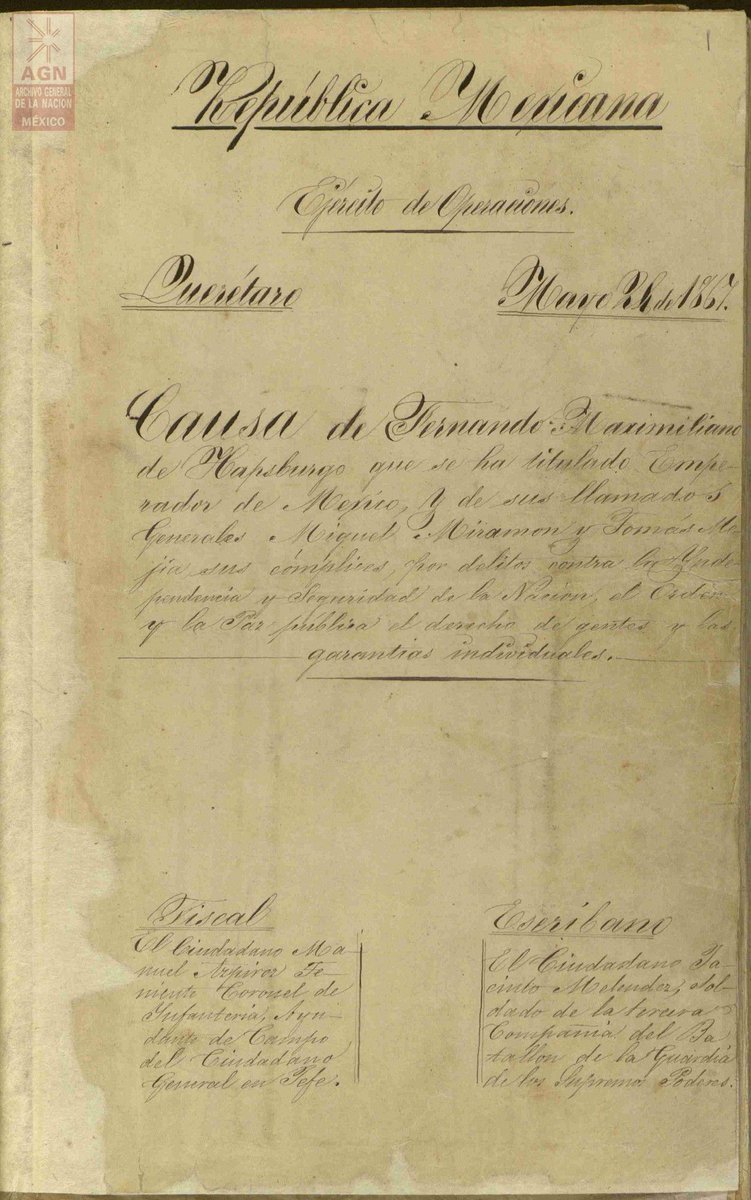 AGN
ARCHIVO GENERAL
DE LA NACION
MÉXICO
1
República Mexicana
Ejército de Operaciones.
Querétaro
Mayo 24 de 1867.
Causa de Fernando Maximiliano
de Hapsburgo que se ha titulado Empe-
rador de Mexico, y de sus llamados
Generales Miguel Miramon y Tomás Me-
jía sus cómplices, por delitos contra la Ynde-
pendencia y Seguridad de la Nacion, el Orden
y la Paz publica el derecho de gentes y las
garantias individuales.
Fiscal
El Ciudadano Ma-
nuel Azpiroz Te-
niente Coronel de
Infantería, Ayu-
dante de Campo
del Ciudadano
General en Jefe.
Escribano
El Ciudadano Ja-
cinto Melendez, Sol-
dado de la tercera
Compañia del Ba-
tallon de la Guardia
de los Supremos Poderes.